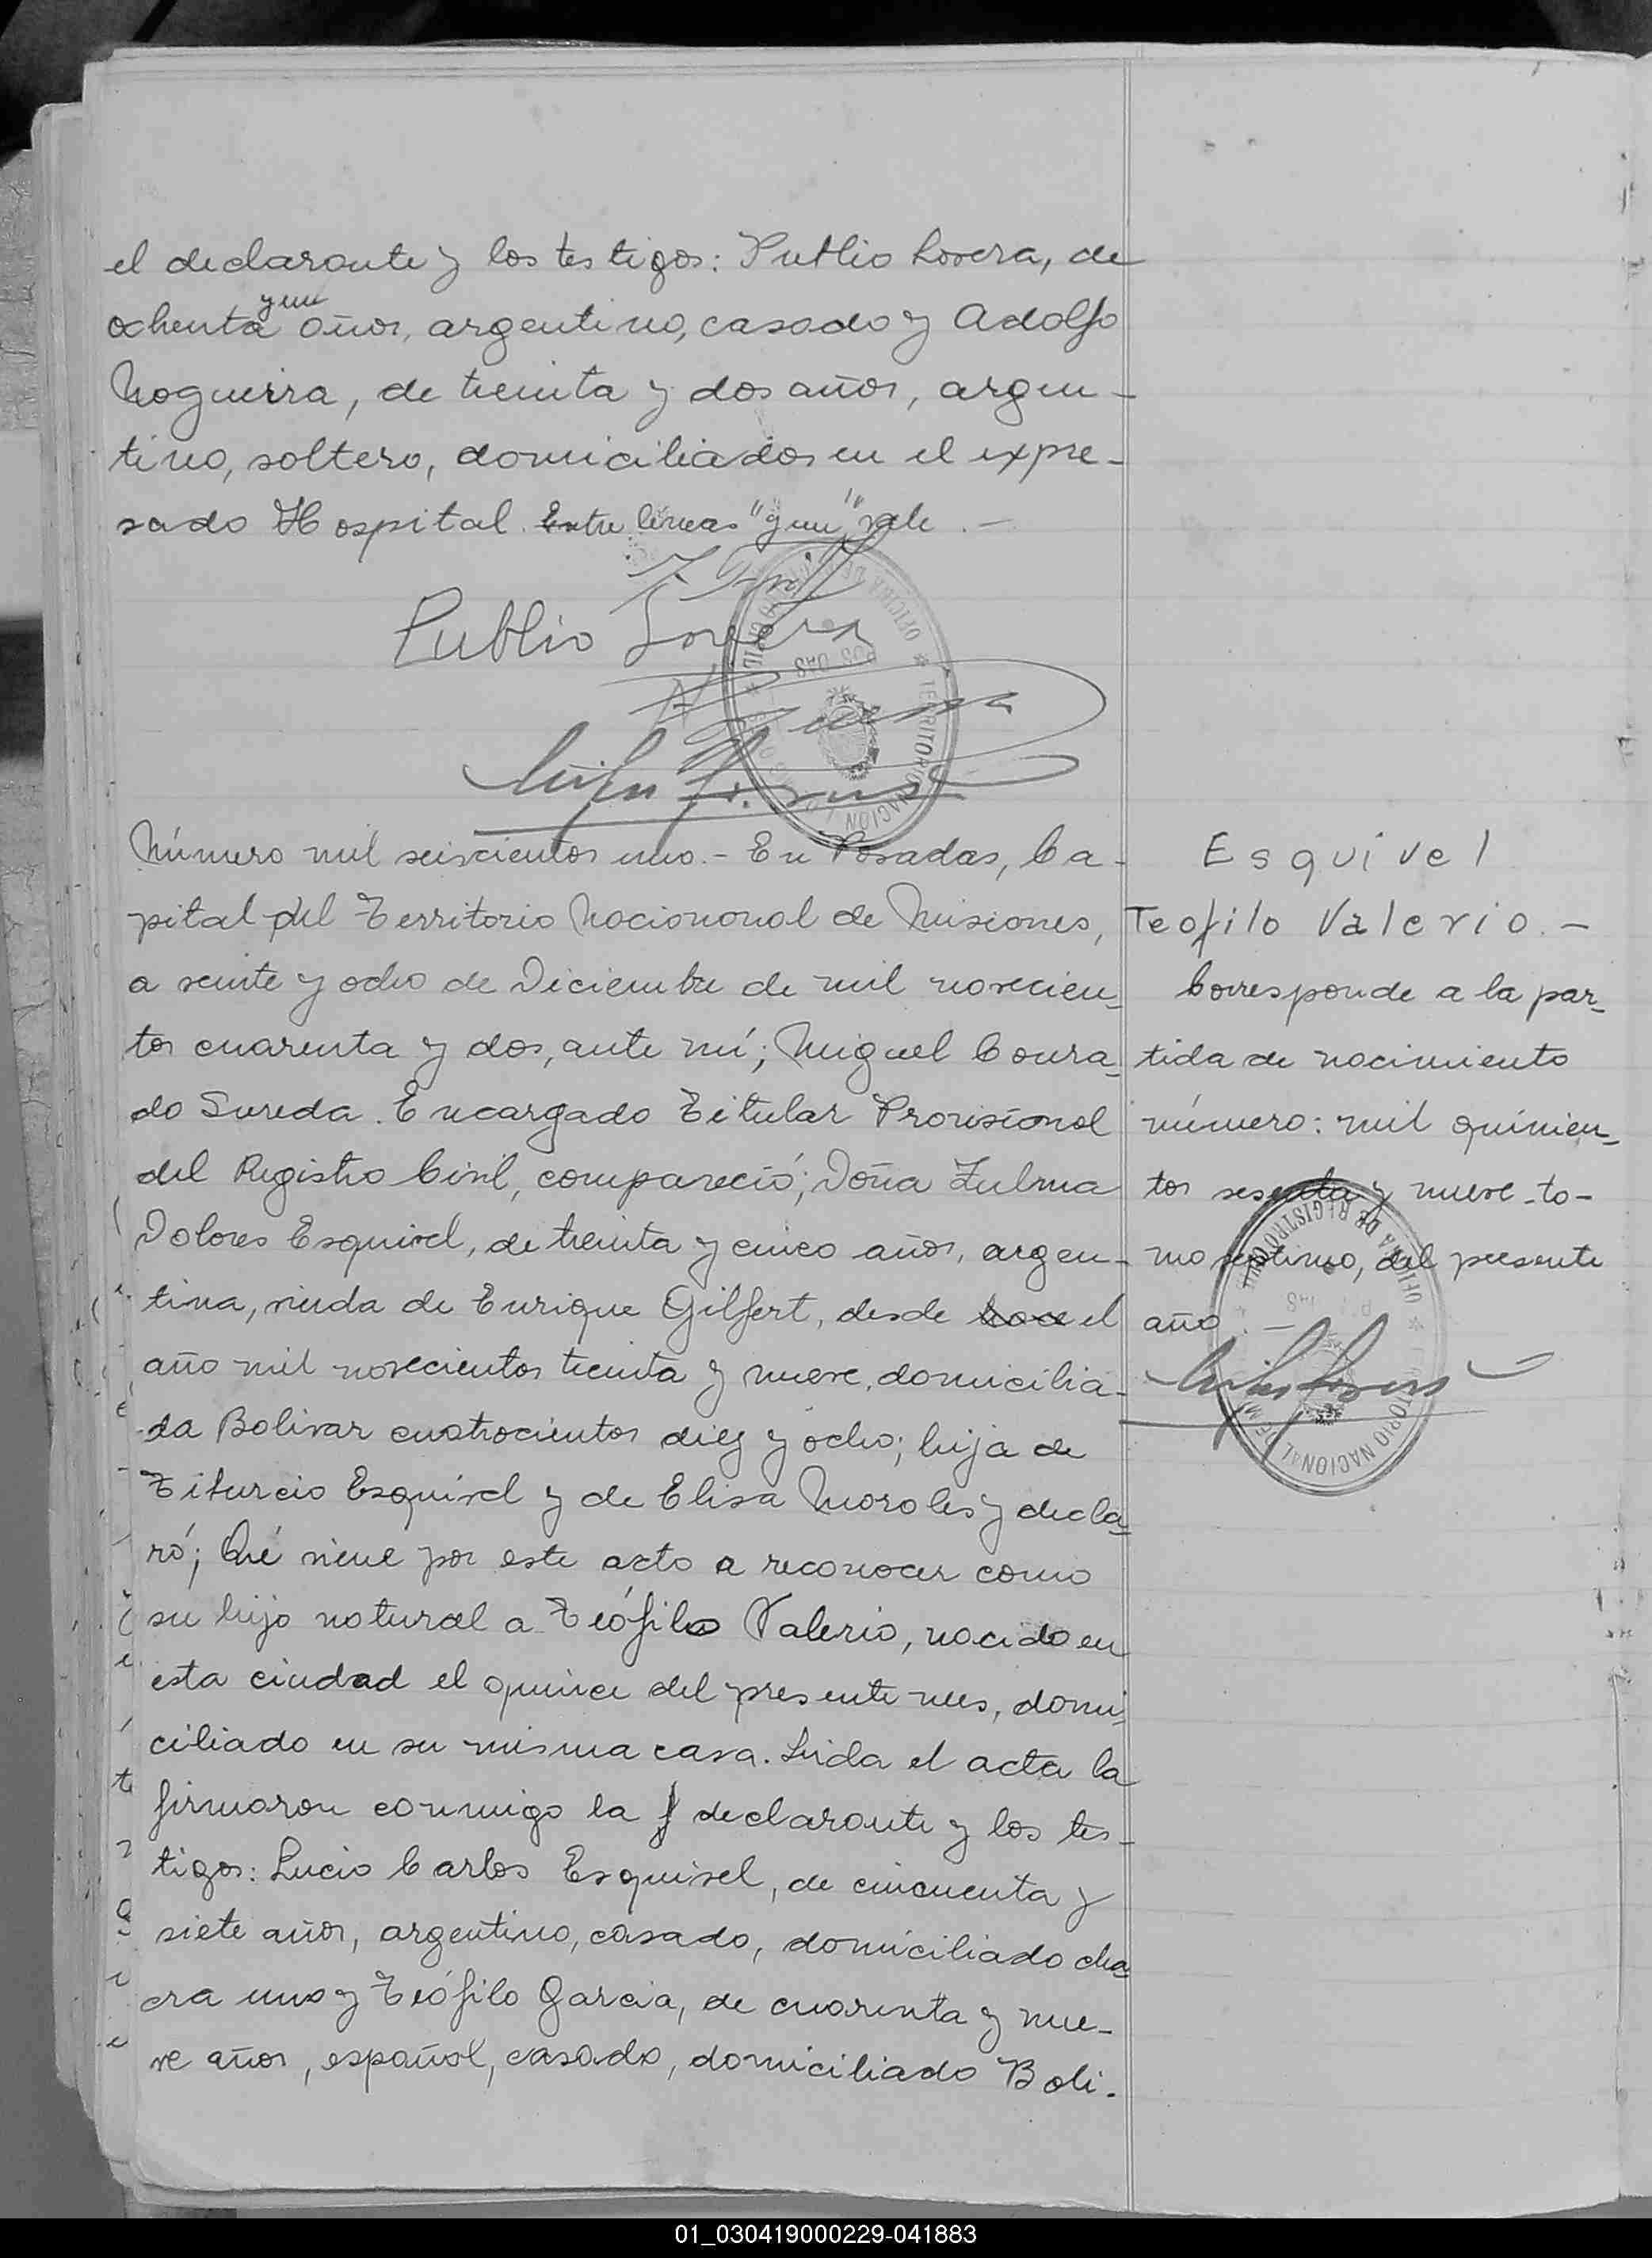 el declarante y los testigos: Publio Lovera, de
y un
ochenta años, argentino, casado y Adolfo
Noguerra, de treinta y dos años, argen-
tino, soltero, domiciliados en el expre-
sado Hospital. Entre líneas "y un" vale.-
Publio Lovera
Número mil seiscientos uno.- En Posadas, Ca-
pital del Territorio Naciononal de Misiones,
a veinte y ocho de Diciembre de mil novecien-
tos cuarenta y dos, ante mí; Miguel Conra-
do Sureda. Encargado Titular Provisional
del Registro Civil, compareció; Doña Zulma
Dolores Esquivel, de treinta y cinco años, argen-
tina, viuda de Enrique Gilfert, desde el
año mil novecientos treinta y nueve, domicilia-
da Bolivar cuatrocientos diez y ocho; hija de
Titurcio Esquivel y de Elisa Morales y decla-
ró; Qué viene por este acto a reconocer como
su hijo natural a Teófilo Valerio, nacido en
esta ciudad el quince del presente mes, domi-
ciliado en su misma casa. Leida el acta la
firmaron conmigo la declarante y los tes-
tigos: Lucio Carlos Esquivel, de cincuenta y
siete años, argentino, casado, domiciliado cha-
cra uno y Teófilo Garcia, de cuarenta y nue-
ve años, español, casado, domiciliado Boli-
Esquivel
Teofilo Valerio.-
Corresponde a la par-
tida de nacimiento
número: mil quinien-
tos sesenta y nueve-to-
mo septimo, del presente
año.-
OFICINA DE REGISTRO CIVIL
TERRITORIO NACIONAL
01_030419000229-041883